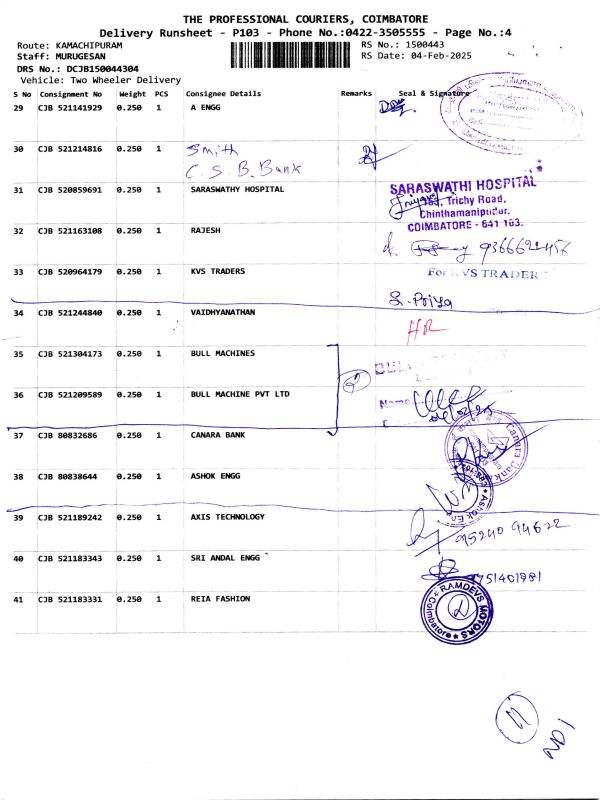 THE PROFESSIONAL COURIERS, COIMBATORE
Delivery Runsheet - P103 - Phone No.:0422-3505555 - Page No.:4
Route: KAMACHIPURAM
RS No.: 1500443
Staff: MURUGESAN
RS Date: 04-Feb-2025
DRS No.: DCJB150044304
Vehicle: Two Wheeler Delivery
S No Consignment No Weight PCS Consignee Details Remarks Seal & Signature
29 CJB 521141929 0.250 1 A ENGG
30 CJB 521214816 0.250 1 Smith
C.S.B. Bank
31 CJB 520859691 0.250 1 SARASWATHY HOSPITAL
SARASWATHI HOSPITAL
Trichy Road,
Chinthamanipudur,
COIMBATORE - 641 103.
32 CJB 521163108 0.250 1 RAJESH
33 CJB 520964179 0.250 1 KVS TRADERS
For KVS TRADERS
S. Priya
34 CJB 521244840 0.250 1 VAIDHYANATHAN
HR
35 CJB 521304173 0.250 1 BULL MACHINES
2
36 CJB 521209589 0.250 1 BULL MACHINE PVT LTD
Name
37 CJB 80832686 0.250 1 CANARA BANK
Canara Bank
38 CJB 80838644 0.250 1 ASHOK ENGG
39 CJB 521189242 0.250 1 AXIS TECHNOLOGY
95240 94622
40 CJB 521183343 0.250 1 SRI ANDAL ENGG
9751401981
41 CJB 521183331 0.250 1 REIA FASHION
RAMDEVS MOTORS
Coimbatore
11